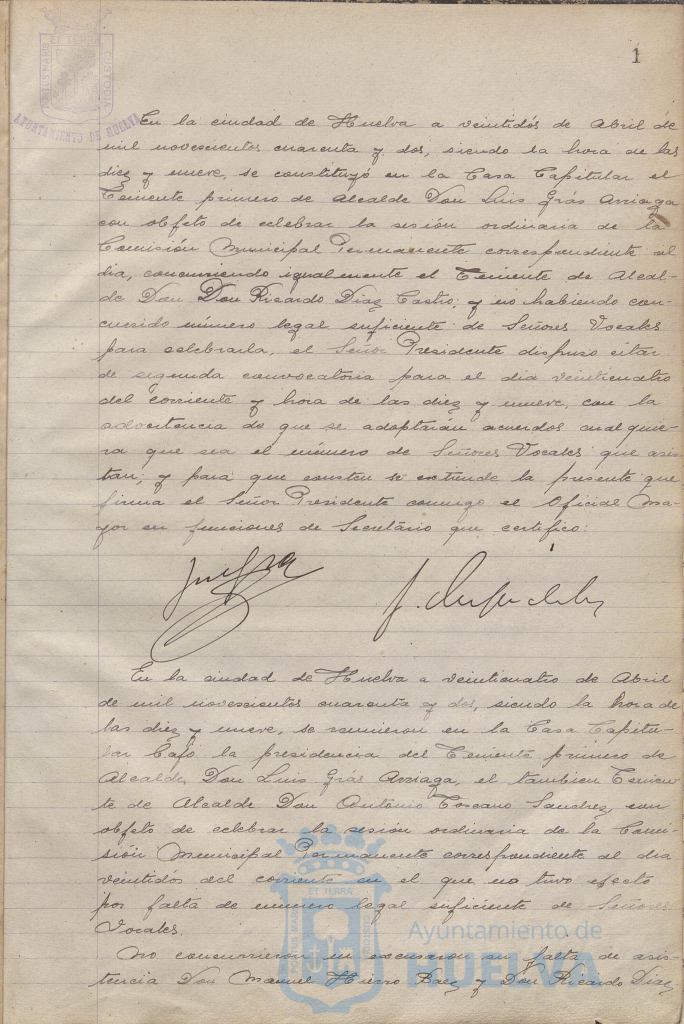 1
PORTUS MARIS
ET TERRÆ
CUSTODIA
AYUNTAMIENTO DE HUELVA
En la ciudad de Huelva a veintidós de Abril de
mil novescientos cuarenta y dos, siendo la hora de las
diez y nueve, se constituyó en la Casa Capitular el
Teniente primero de Alcalde Don Luis Grás Arriaga
con objeto de celebrar la sesión ordinaria de la
Comisión Municipal Permanente correspondiente al
dia, concurriendo igualmente el Teniente de Alcal-
de Don Don Ricardo Diaz Castro; y no habiendo con-
currido número legal suficiente de Señores Vocales
para celebrarla, el Señor Presidente dispuso citar
de segunda convocatoria para el dia veinticuatro
del corriente y hora de las diez y nueve, con la
advertencia de que se adoptarán acuerdos cualquie-
ra que sea el número de Señores Vocales que asis-
tan; y para que conste se extiende la presente que
firma el Señor Presidente conmigo el Oficial Ma-
yor en funciones de Secretário que certifico:
En la ciudad de Huelva a veinticuatro de Abril
de mil novescientos cuarenta y dos, siendo la hora de
las diez y nueve, se reunieron en la Casa Capitu-
lar bajo la presidencia del Teniente primero de
Alcalde, Don Luis Grás Arriaga, el tambien Tenien-
te de Alcalde Don António Toscano Sanchez, con
objeto de celebrar la sesión ordinaria de la Comi-
sión Municipal Permanente correspondiente al dia
veintidós del corriente en el que no tuvo efecto
por falta de número legal suficiente de Señores
Vocales.
No concurrieron ni excusaron su falta de asis-
tencia Don Manuel Hierro Baez y Don Ricardo Diaz
PORTUS MARIS
ET TERRÆ
CUSTODIA
Ayuntamiento de
HUELVA